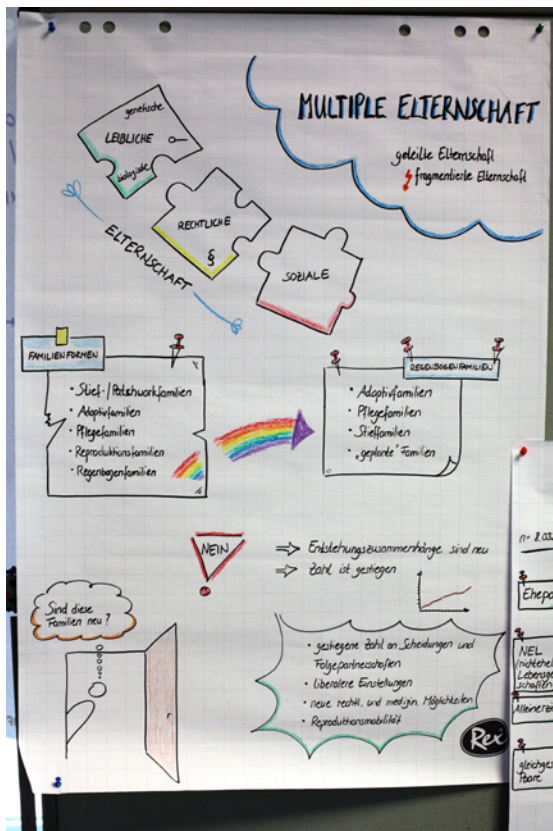 MULTIPLE ELTERNSCHAFT
geteilte Elternschaft
fragmentierte Elternschaft
genetische
LEIBLICHE
biologische
RECHTLICHE
§
SOZIALE
ELTERNSCHAFT
FAMILIENFORMEN
• Stief-/Patchworkfamilien
• Adoptivfamilien
• Pflegefamilien
• Reproduktionsfamilien
• Regenbogenfamilien
REGENBOGENFAMILIEN
• Adoptivfamilien
• Pflegefamilien
• Stieffamilien
• „geplante" Familien
NEIN
⇒ Entstehungszusammenhänge sind neu
⇒ Zahl ist gestiegen
Sind diese
Familien neu?
• gestiegene Zahl an Scheidungen und
Folgepartnerschaften
• liberalere Einstellungen
• neue rechtl. und medizin. Möglichkeiten
• Reproduktionsmobilität
Rex
n= 8.03
Ehepa
NEL
Lebensge
schaften
Alleinerzi
gleichges
Paare